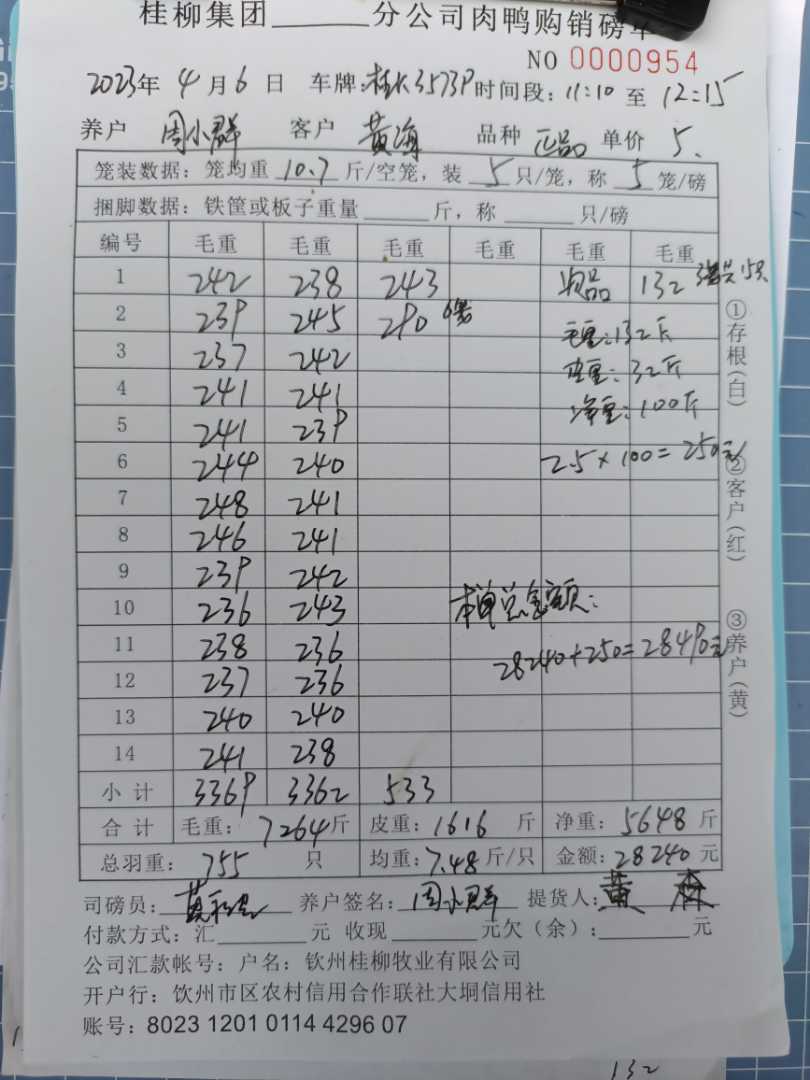 桂柳集团______分公司肉鸭购销磅单
NO 0000954
2023年 4月6日 车牌:桂K3573P 时间段:11:10 至 12:15
养户 周小群 客户 黄海 品种 正品 单价 5.
笼装数据:笼均重 10.7 斤/空笼,装 5 只/笼,称 5 笼/磅
捆脚数据:铁筐或板子重量______斤,称______只/磅
编号 毛重 毛重 毛重 毛重 毛重 毛重
1 242 238 243 132
2 239 245 290 6笼
毛重:132斤
3 237 242
皮重:32斤
4 241 241
净重:100斤
5 241 239
6 244 240 2.5×100=250元
7 248 241
8 246 241
9 239 242
10 236 243 本单总金额:
11 238 236 28240+250=28490元
12 237 236
13 240 240
14 241 238
小计 3369 3362 533
合计 毛重:7264斤 皮重:1616斤 净重:5648斤
总羽重:755只 均重:7.48斤/只 金额:28240元
司磅员: 养户签名:周小群 提货人:黄
付款方式:汇______元 收现______元欠(余):______元
公司汇款帐号:户名:钦州桂柳牧业有限公司
开户行:钦州市区农村信用合作联社大垌信用社
账号:8023 1201 0114 4296 07
①存根(白)
②客户(红)
③养户(黄)
132